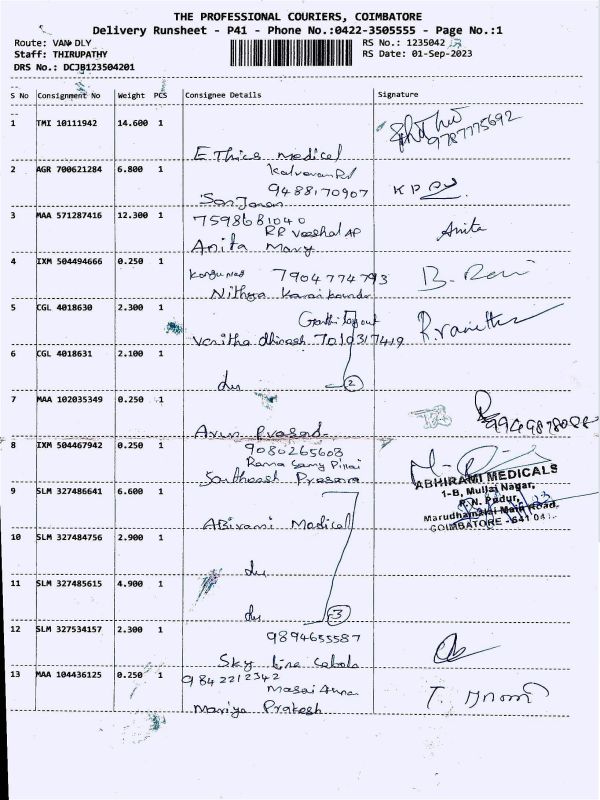 THE PROFESSIONAL COURIERS, COIMBATORE
Delivery Runsheet - P41 - Phone No.:0422-3505555 - Page No.:1
Route: VAN DLY
RS No.: 1235042
Staff: THIRUPATHY
RS Date: 01-Sep-2023
DRS No.: DCJB123504201
S No Consignment No Weight PCS Consignee Details Signature
1 TMI 10111942 14.600 1
9787775692
Ethics medical
2 AGR 700621284 6.800 1
9488170907
3 MAA 571287416 12.300 1
7598681040
Anita
Anita Mary
4 IXM 504494666 0.250 1
7904774793
Nithya
5 CGL 4018630 2.300 1
Vanitha dhinesh 7010317419
6 CGL 4018631 2.100 1
du 2
7 MAA 102035349 0.250 1
Arun Prasad
8 IXM 504467942 0.250 1
9080265603
Rama Samy Pillai
ABHIRAMI MEDICALS
1-B, Mullai Nagar,
P.N. Pudur,
Marudhamalai Main Road,
COIMBATORE - 641 041.
9 SLM 327486641 6.600 1
ABirami Medical
10 SLM 327484756 2.900 1
du
11 SLM 327485615 4.900 1
du 3
12 SLM 327534157 2.300 1
9894655587
Sky line
13 MAA 104436125 0.250 1
9842212342
Mariya Prakash